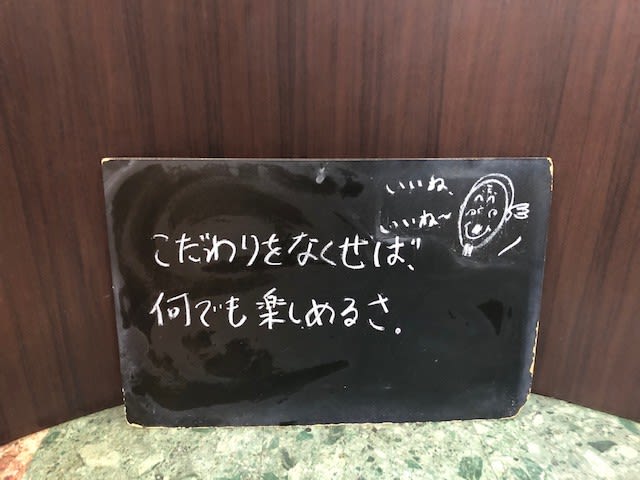 いいね、
いいね〜
こだわりをなくせば、
何でも楽しめるさ。